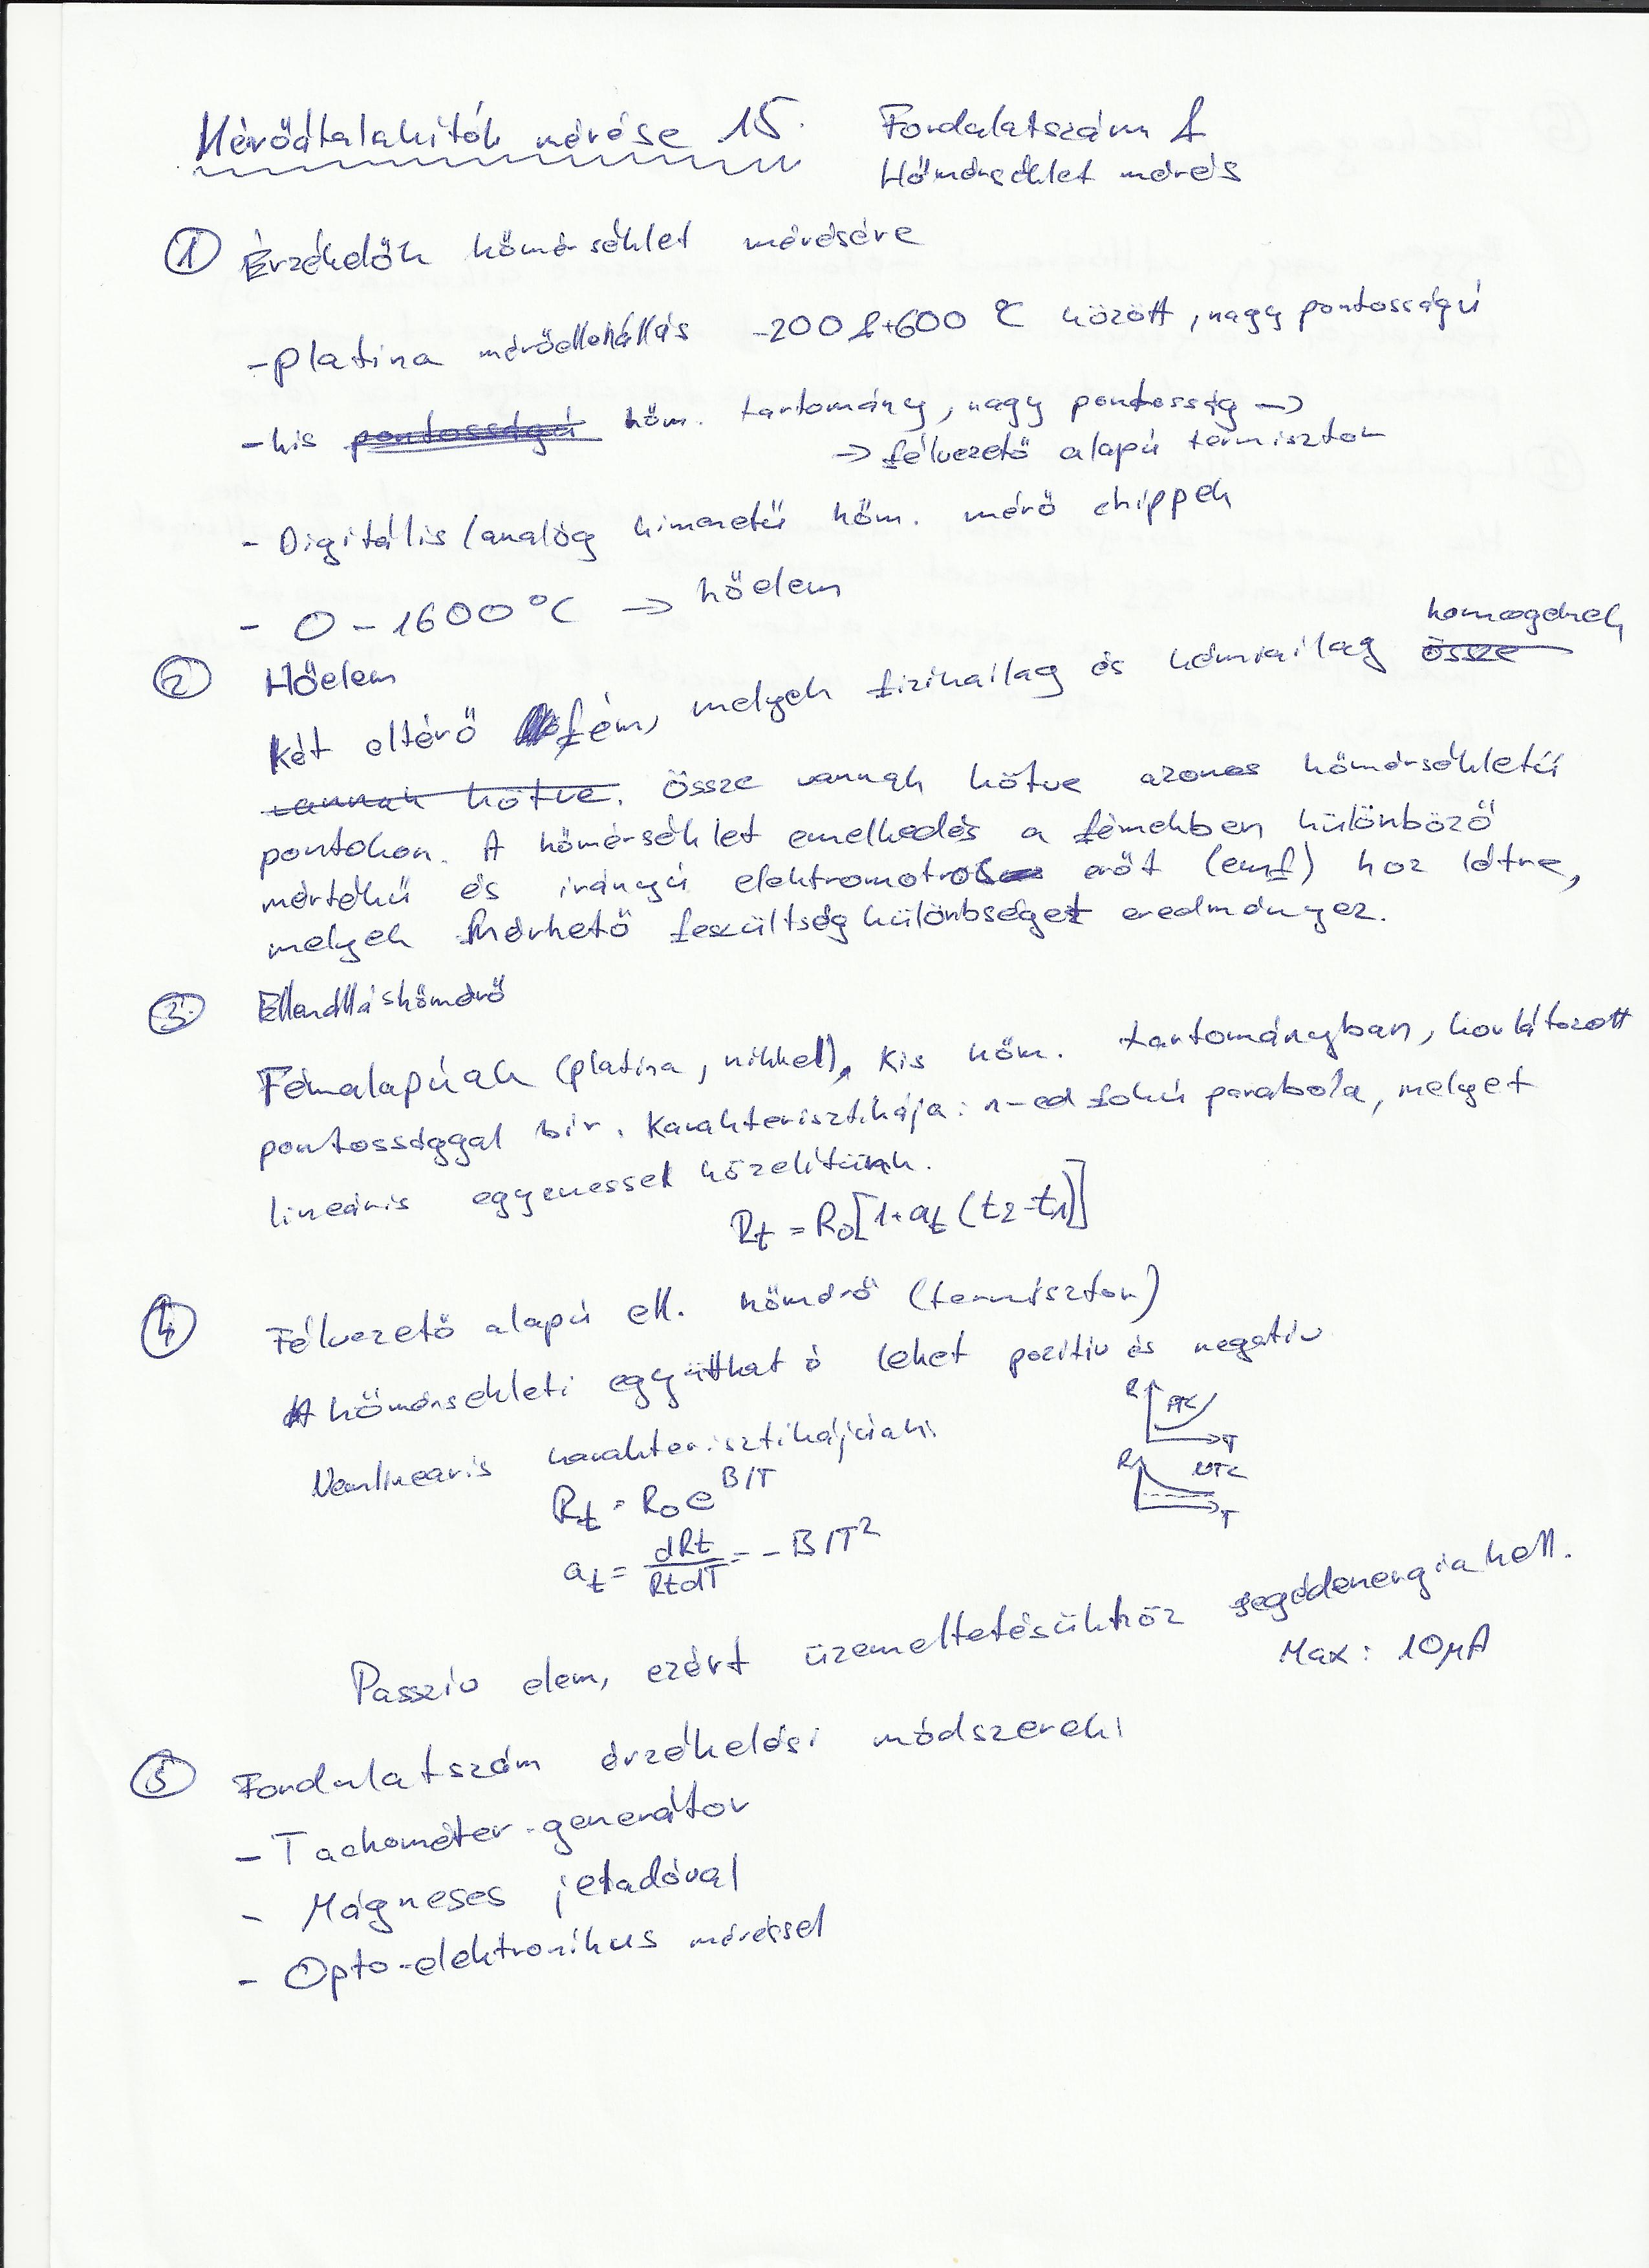 Mérőátalakítók mérése 15.
Fordulatszám &
Hőmérséklet mérés
① Érzékelők hőmérséklet mérésére
- Platina mérőellenállás -200 & +600 °C között, nagy pontosságú
- kis pontosságú hőm. tartomány, nagy pontosság →
→ félvezető alapú termisztor
- Digitális/analóg kimenetű hőm. mérő chippek
- 0 - 1600 °C → hőelem
② Hőelem
Két eltérő fém, melyek fizikailag és kémiailag össze homogének
vannak kötve. Össze vannak kötve azonos hőmérsékletű
pontokon. A hőmérséklet emelkedés a fémekben különböző
mértékű és irányú elektromotoros erőt (emf) hoz létre,
melyek mérhető feszültségkülönbséget eredményez.
③ Ellenálláshőmérő
Fémalapúak (platina, nikkel), kis hőm. tartományban, korlátozott
pontossággal bír. Karakterisztikája: n-ed fokú parabola, melyet
lineáris egyenessel közelítünk.
Rt = R0[1+at(t2-t1)]
④ Félvezető alapú ell. hőmérő (termisztor)
A hőmérsékleti együttható lehet pozitív és negatív
R PTC T
Nemlineáris karakterisztikájúak:
R NTC T
Rt = R0 e^B/T
at = dRt/RtdT = -B/T²
Passzív elem, ezért üzemeltetésükhöz segédenergia kell.
Max: 10µA
⑤ Fordulatszám érzékelési módszerek:
- Tachométer-generátor
- Mágneses jeladóval
- Opto-elektronikus méréssel